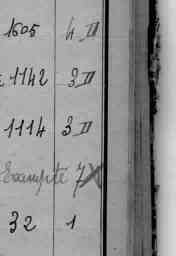 1605 4 II
1142 3 II
1114 3 II
Exempte 7
32 1